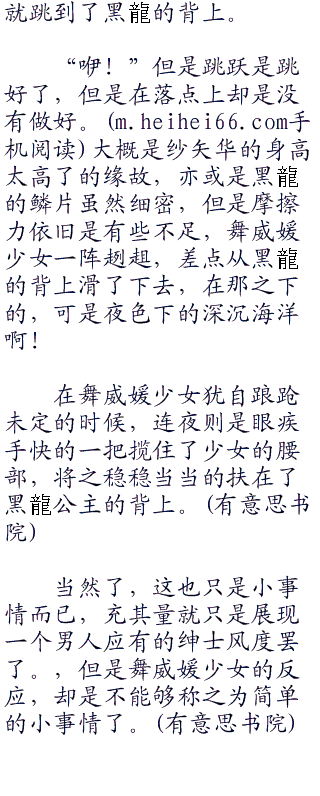 就跳到了黑龍的背上。
“咿！”但是跳跃是跳
好了，但是在落点上却是没
有做好。(m.heihei66.com手
机阅读)大概是纱矢华的身高
太高了的缘故，亦或是黑龍
的鳞片虽然细密，但是摩擦
力依旧是有些不足，舞威媛
少女一阵趔趄，差点从黑龍
的背上滑了下去，在那之下
的，可是夜色下的深沉海洋
啊！
在舞威媛少女犹自踉跄
未定的时候，连夜则是眼疾
手快的一把揽住了少女的腰
部，将之稳稳当当的扶在了
黑龍公主的背上。(有意思书
院)
当然了，这也只是小事
情而已，充其量就只是展现
一个男人应有的绅士风度罢
了。，但是舞威媛少女的反
应，却是不能够称之为简单
的小事情了。(有意思书院)